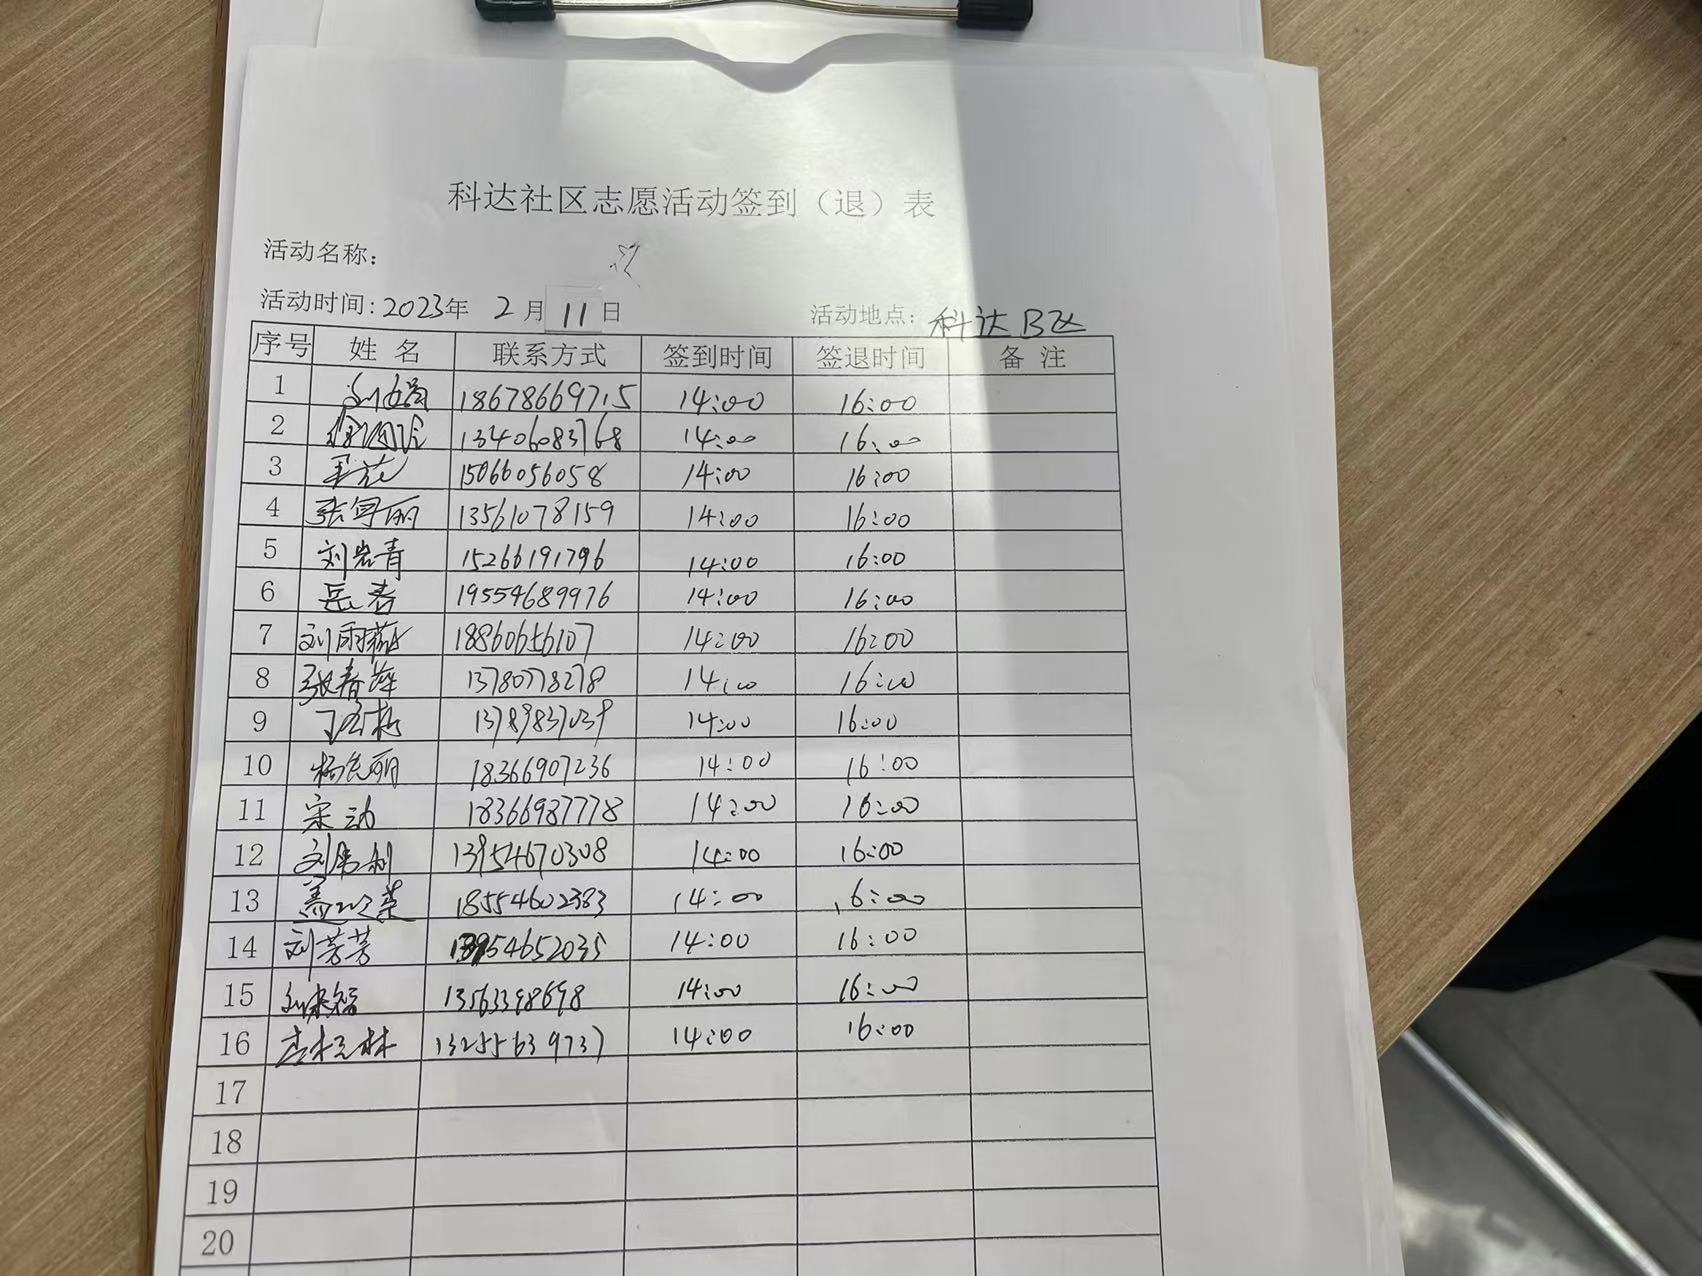 科达社区志愿活动签到（退）表
活动名称：
活动时间：2023年 2月 11日 活动地点：科达B区
序号 姓名 联系方式 签到时间 签退时间 备注
1 18678669715 14:00 16:00
2 13406083768 14:00 16:00
3 15066056058 14:00 16:00
4 13561078159 14:00 16:00
5 刘岩青 15266191796 14:00 16:00
6 岳春 19554689976 14:00 16:00
7 刘雨薇 18860656107 14:00 16:00
8 张春萍 13780778278 14:00 16:00
9 13789837039 14:00 16:00
10 18366907236 14:00 16:00
11 宋动 18366987778 14:00 16:00
12 13954670308 14:00 16:00
13 18554602383 14:00 16:00
14 刘芳芳 13954652035 14:00 16:00
15 13563398698 14:00 16:00
16 13255639737 14:00 16:00
17
18
19
20